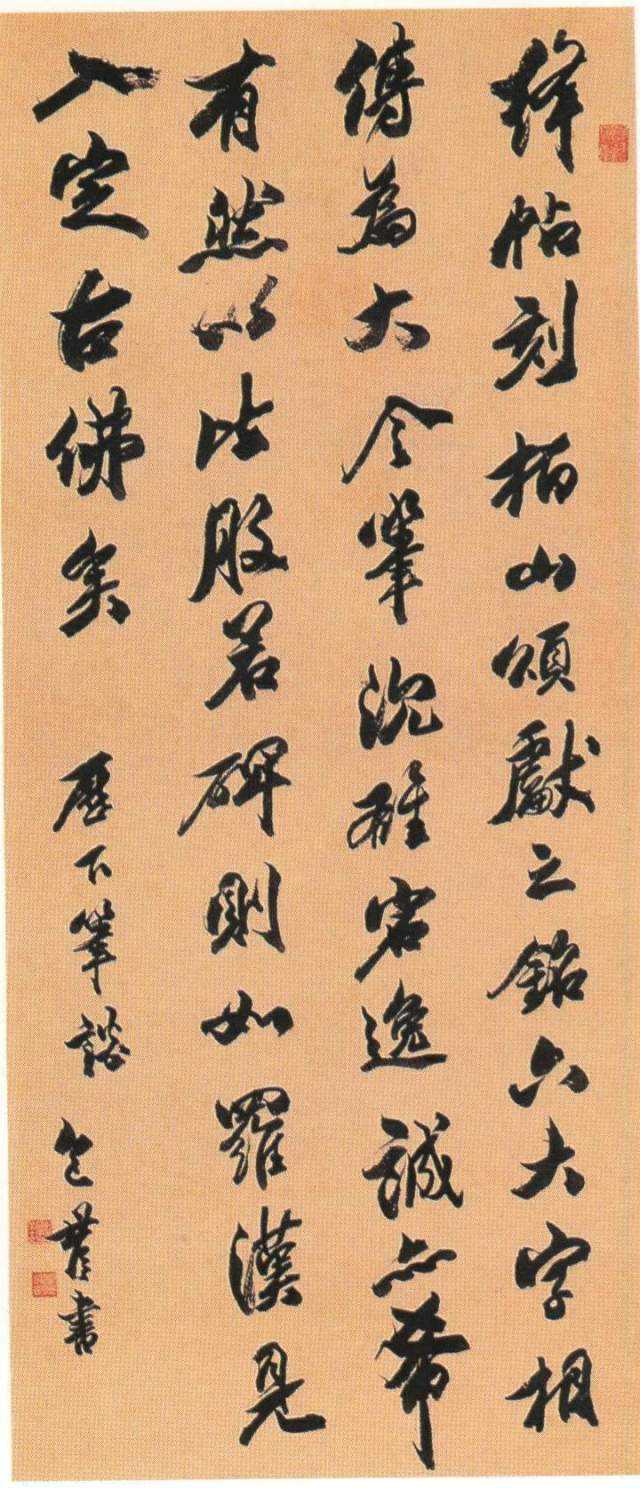 絳帖刻柏山頌獻之銘六大字相
傳為大令筆沉雄宕逸誠亦希
有然以比般若碑則如羅漢見
入定古佛矣　歷下筆譚　包世臣書